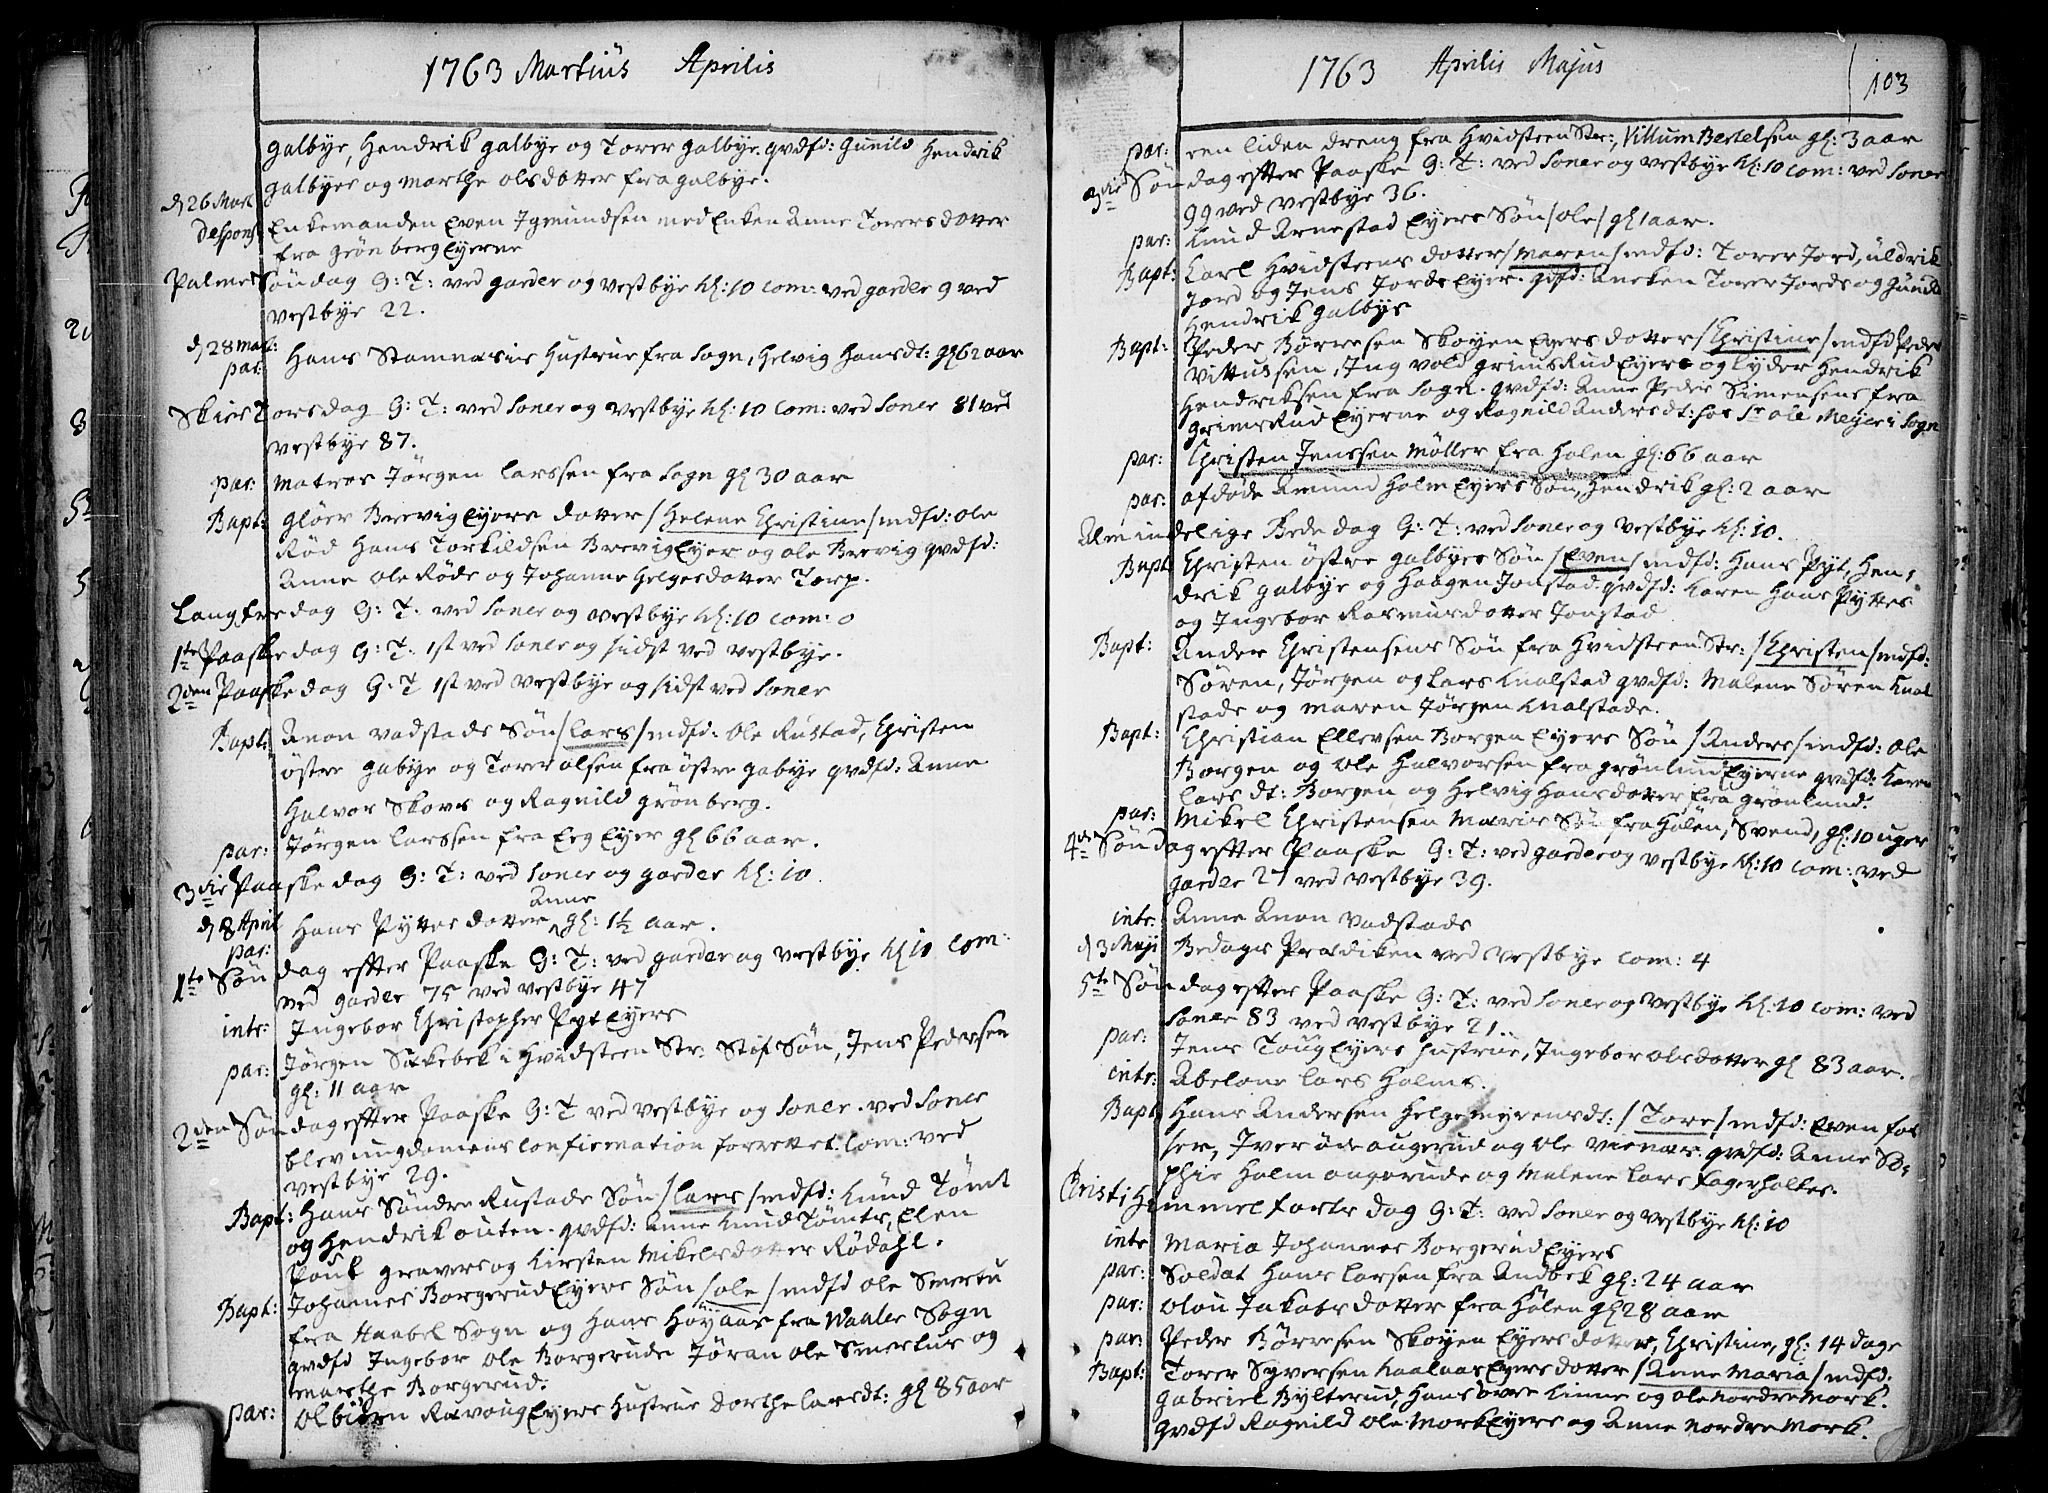 1763 Martius Aprilis
galbye, Hendrik galbye og Torer galbye. qvdfd: Gunild Hendrik
galbyes og Marthe olsdotter fra galbye.
d 26 Mart
Despons. Enkemanden Even Igmundsen med Enken Anne Torersdotter
fra grönberg Eyerne
Palme Søndag G: T: ved garder og vestbye Kl: 10 com: ved garder 9 ved
vestbye 22.
d 28 Mart:
par: Hans Stamnæsis Hustrue fra Sogn, Helvig Hansdt: gl 62 aar
Skiertorsdag G: T: ved Soner og vestbye Kl: 10 com: ved Soner 81 ved
vestbye 87.
par: Matros Jörgen Larssen fra Sogn gl 30 aar
Bapt: Glöer Brevig Eyers dotter /Helene Christine/ mdfd: ole
Röd Hans Torkildsen Brevig Eyer og ole Brevig qvdfd:
Anne ole Röds og Johanne Helgesdotter Torp.
Langfredag G: T: ved Soner og vestbye Kl: 10 com: 0
1te Paaskedag G: T: 1st ved Soner og sidst ved vestbye.
2den Paaskedag G: T 1st ved vestbye og sidst ved Soner
Bapt: Anon vadstads Søn /Lars/ mdfd: ole Rustad, Christen
östre gabye og Torer olsen fra östre gabye qvdfd: Anne
Halvor Skovs og Ragnild grönberg.
par: Jörgen Larssen fra Eeg Eyer gl 66 aar.
3die Paaskedag G: T: ved Soner og garder Kl: 10
Anne
d 8 April Hans Pyttes dotter gl: 1½ aar.
par:
1te Søndag effter Paaske G: T: ved garder og vestbye Kl 10 Com:
ved garder 75 ved vestbye 47
intr: Ingebor Christopher Pyt Eyers
par: Jörgen Sækebek i Hvidsteen Str: Stif Søn, Jens Pedersen
gl: 11 aar
2den Søndag effter Paaske G: T ved vestbye og Soner. ved Soner
blev ungdomens Confirmation forrettet. Com: ved
vestbye 29.
Bapt: Hans Søndre Rustads Søn /Lars/ mdfd: Knud Tömt
og Hendrik outen. qvdfd: Anne Knud Tömts, Elen
Poul gravers og Kirsten Mikelsdotter Rödahl.
Bapt: Johannes Borgerud Eyers Søn /ole/ mdfd ole Smertu
fra Haabel Sogn og Hans Höyaas fra Waaler Sogn
qvdfd Ingebor ole Borgeruds Jöran ole Smertus og
Marthe Borgerud.
par: Olbiörn Ravoug Eyers Hustrue Dorthe Larsdt: gl 85 aar
1763 Aprilis Majus 103
par: een liden dreng fra Hvidsteen Str:, Villum Bertelsen gl: 3 aar
3die Søndag effter Paaske G: T: ved Soner og vestbye Kl: 10 com: ved Soner
99 ved vestbye 36.
par: Knud Arnestad Eyers Søn /ole/ gl 1 aar.
Bapt: Carl Hvidsteens dotter /Maren/ mdfd: Torer Jord, uldrik
Jord og Jens Jords Eyer. qdfd: Aneken Torer Jords og Gunild
Hendrik galbye
Bapt: Peder Börresen Skoyen Eyers dotter /Christine/ mdfd Peder
Vittussen, Ingvold grimsRud Eyer og Lyder Hendrik
Hendriksen fra Sogn. qvdfd: Anne Peder Simensens fra
grimsRud Eyerne og Ragnild Andersdt: hos Sr ole Meyer i Sogn
par: Christen Jenssen Möller fra Holen gl: 66 aar
par: afdøde Amund Holm Eyers Søn, Hendrik gl: 2 aar
Almindelige Bededag G: T: ved Soner og vestbye Kl: 10.
Bapt Christen östre galbyes Søn /Even/ mdfd: Hans Pyt, Hen,
drik galbye og Haagen Jonstad qvdfd: Karen Hans Pyttes
og Ingebor Rasmusdotter Jonstad
Bapt: Ander Christensens Søn fra Hvidsteen Str: /Christen/ mdfd:
Sören, Jörgen og Lars Knalstad qvdfd: Malene Sören Knal
stads og Maren Jörgen Knalstads.
Bapt: Christian Ellevsen Borgen Eyers Søn /Anders/ mdfd: ole
Borgen og ole Halvorsen fra grönlund Eyerne qvdfd: Karen
Larsdt: Borgen og Helvig Hansdotter fra grönlund.
par: Mikel Christensen Maries Søn fra Hölen, Svend, gl: 10 uger
4de Søndag effter Paaske G: T: ved garder og vestbye Kl: 10 com: ved
garder 27 ved vestbye 39.
intr: Anne Anon vadstads
d 3 Maji Bedags Prædiken ved vestbye com: 4
5te Søndag effter Paaske G: T: ved Soner og vestbye Kl: 10 com: ved
Soner 83 ved vestbye 21.
par: Jens Toug Eyers hustrue, Ingebor olsdotter gl 83 aar.
intr: Abelone Lars Holms.
Bapt Hans Andersen Helgemyrens dt: /Tore/ mdfd: Even fos
ser, Iver ödeaugerud og ole vienæs qvdfd: Anne So,
phie Holm angeruds og Malene Lars Fagerholtes.
Christi Himmelfarts dag G: T: ved Soner og vestbye Kl: 10
intr Maria Johannes Borgerud Eyers
par: Soldat Hans Larsen fra Andbek gl: 24 aar
par: olou Jakobsdotter fra Hölen gl 28 aar
par: Peder Börresen Skoyen Eyers dotter, Christine, gl: 14 dage
Bapt: Torer Syversen Kaalaas Eyers dotter /Anne Maria/ mdfd:
Gabriel Bylterud, Hans övre Linne og ole nordre Mork.
qvdfd Ragnild ole Mork Eyers og Anne nordre Mork.